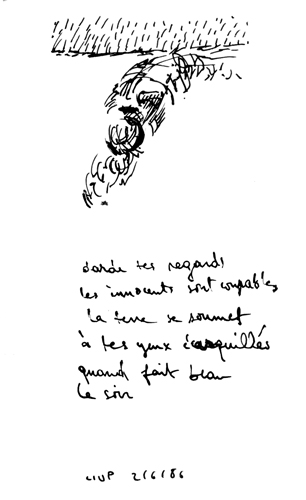 darde tes regards
les innocents sont coupables
la terre se soumet
à tes yeux écarquillés
quand fait beau
le soir
2/6/86